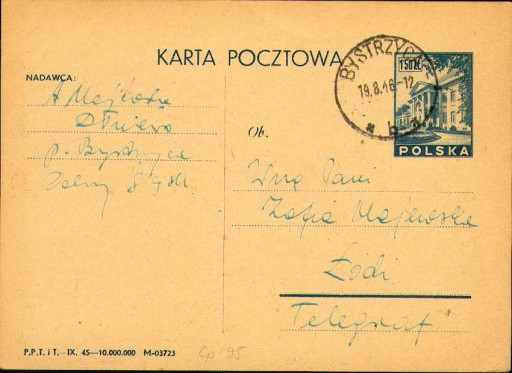 KARTA POCZTOWA
150 ZŁ
BYSTRZYCA
19.8.46-12
* b *
POLSKA
NADAWCA:
A Majewska
p. Bystrzyca
Ob.
Wną Pani
Zofia Majewska
Łódź
Telegraf
P.P.T. i T. - IX. 45—10.000.000 M-03723
Cp 95